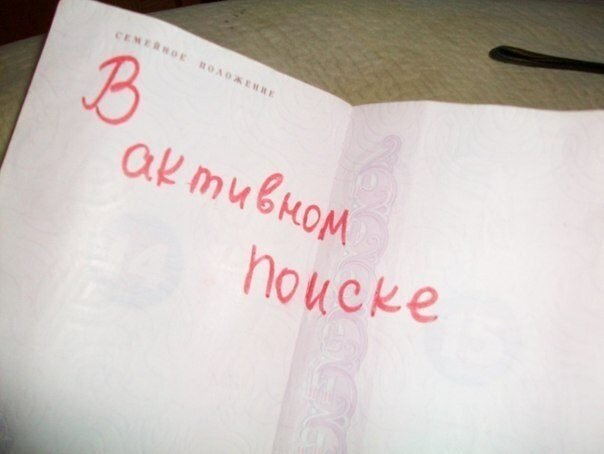 СЕМЕЙНОЕ ПОЛОЖЕНИЕ
В
активном
поиске